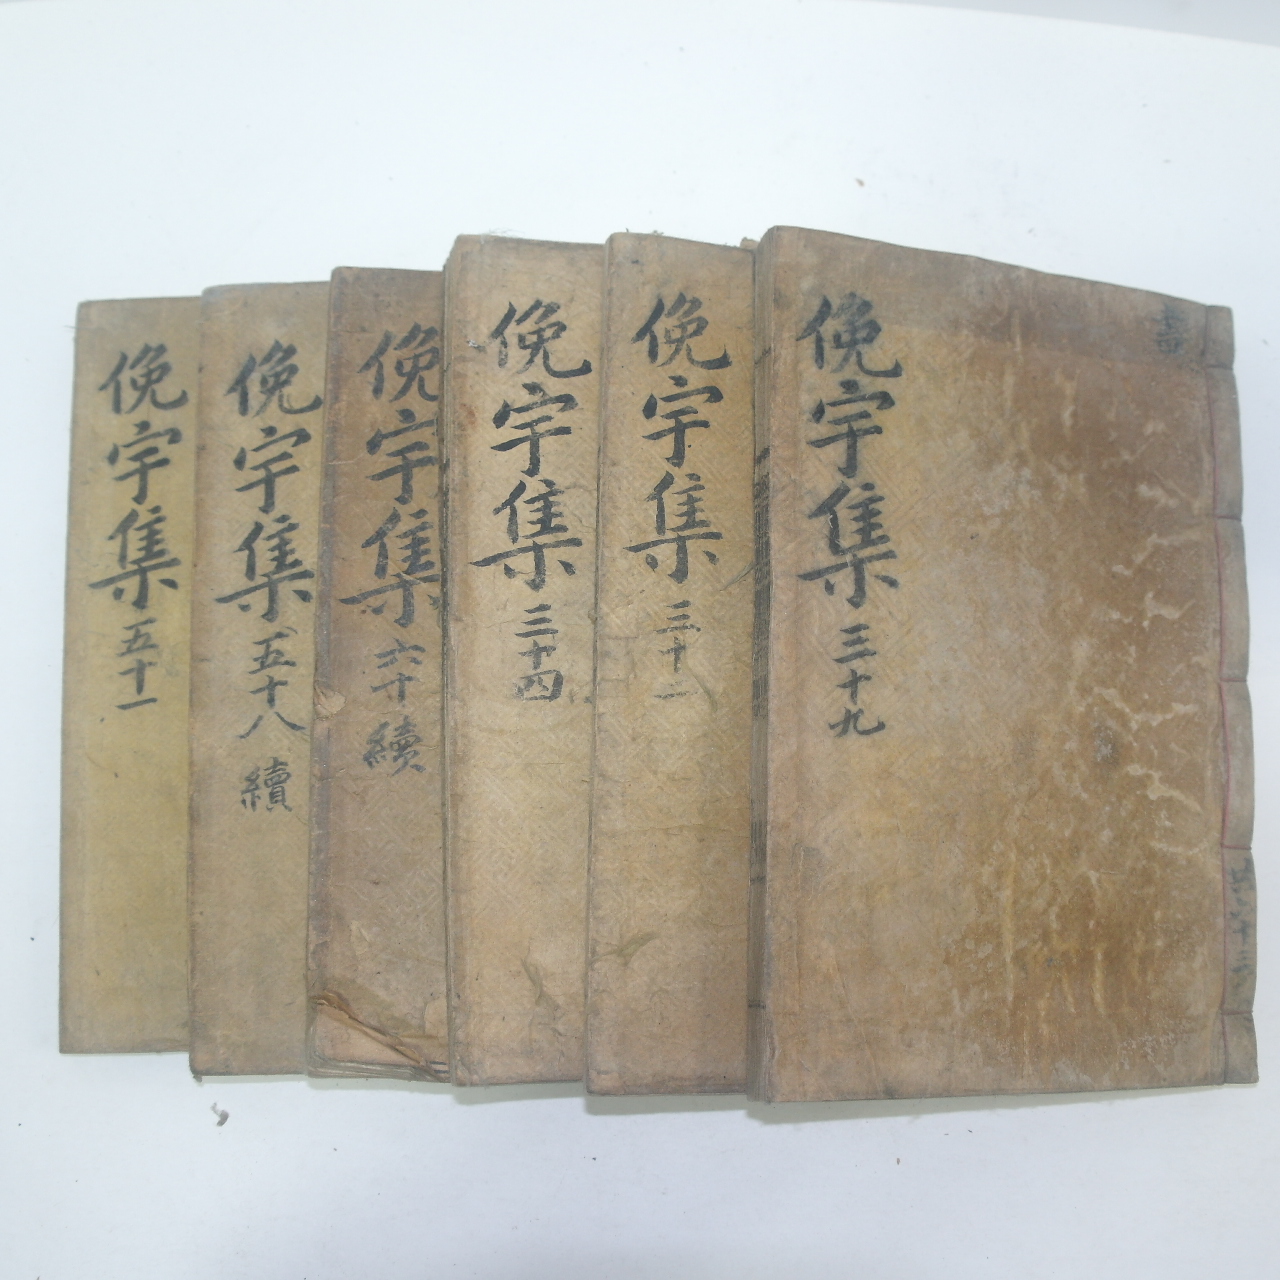 俛宇集 三十九
書
共六十三
俛宇集 三十一
俛宇集 三十四
俛宇集 六十 續
俛宇集 五十八 續
俛宇集 五十一